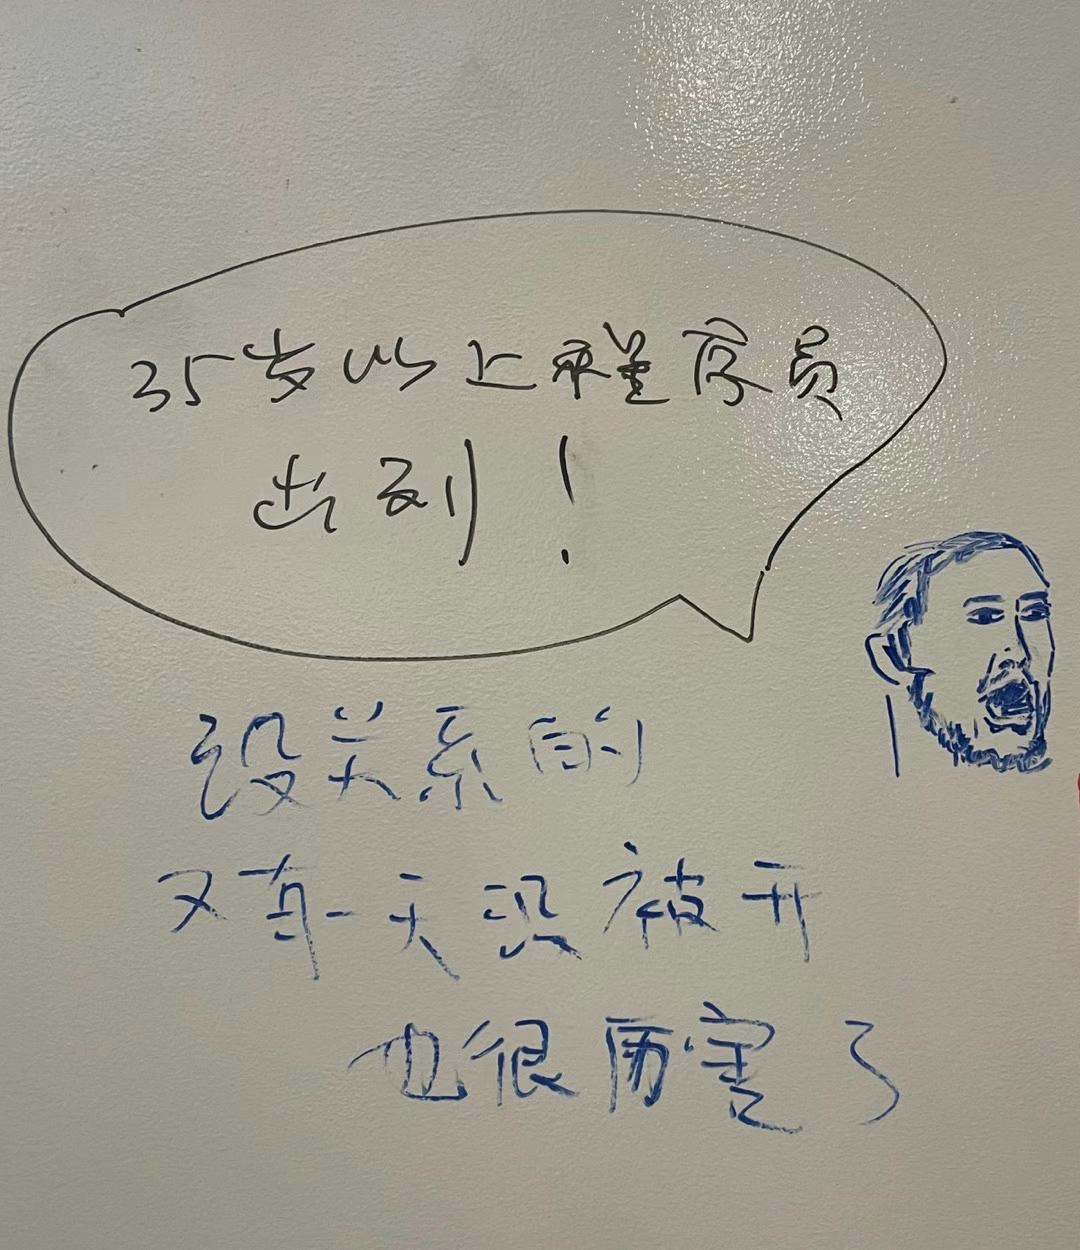 35岁以上程序员
出列!
没关系的
又有一天没被开
也很厉害了